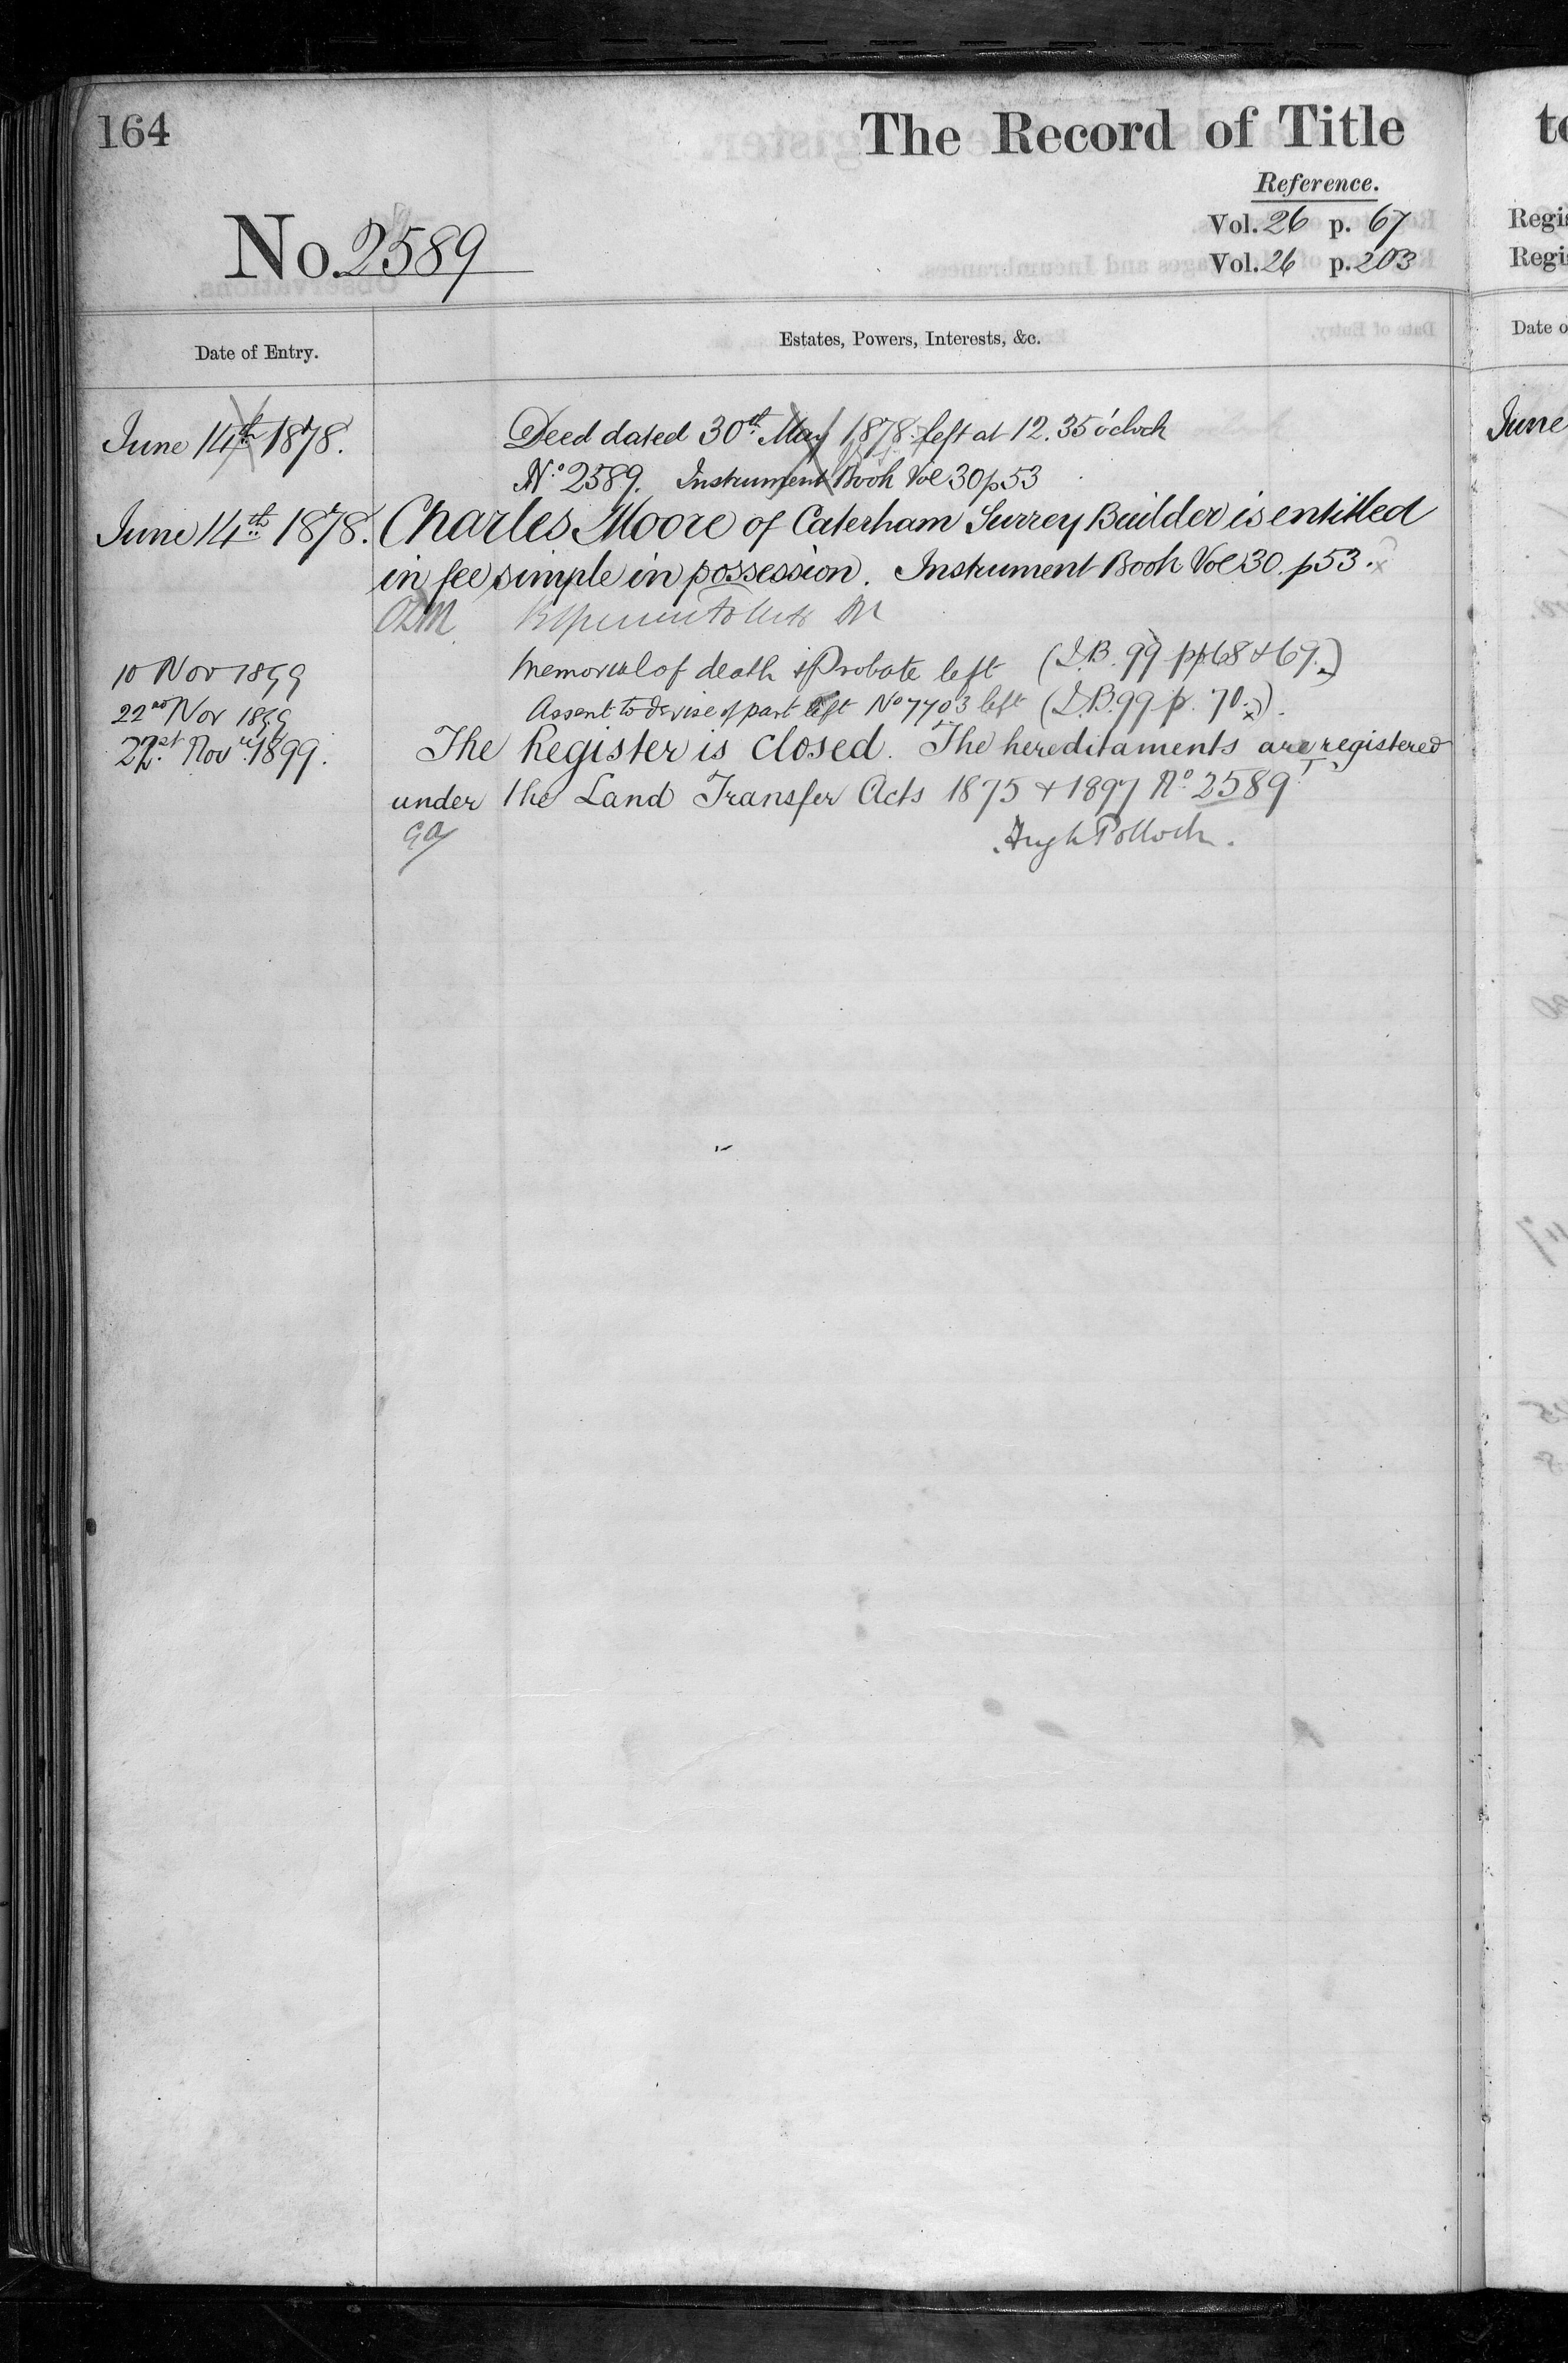 164
The Record of Title
Reference.
Vol. 26 p. 67
No. 2589
Vol. 26 p. 203
Date of Entry.
Estates, Powers, Interests, &c.
June 14th 1878. Deed dated 30th May 1878. left at 12.35 o'clock
No. 2589. Instrument Book Vol 30 p 53
June 14th 1878. Charles Moore of Caterham Surrey Builder is entitled
in fee simple in possession. Instrument Book Vol 30. p 53.
10 Nov 1899 Memorial of death & Probate left (I.B. 99 pp 68 & 69.)
22nd Nov 1899 Assent to devise of part left No 7703 left (I.B. 99 p. 70.)
Nov. 1899. The Register is closed. The hereditaments are registered
under the Land Transfer Acts 1875 & 1897 No. 2589
Hugh Pollock.
to
Regis
Regi
Date o
June